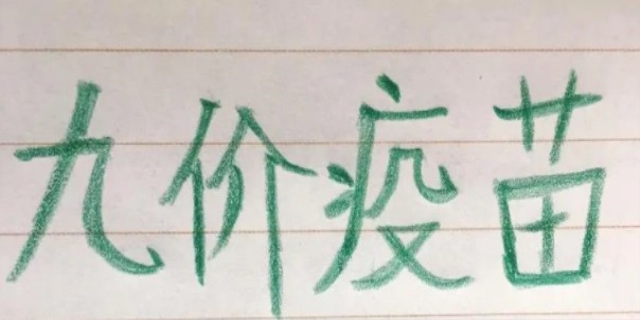 九价疫苗